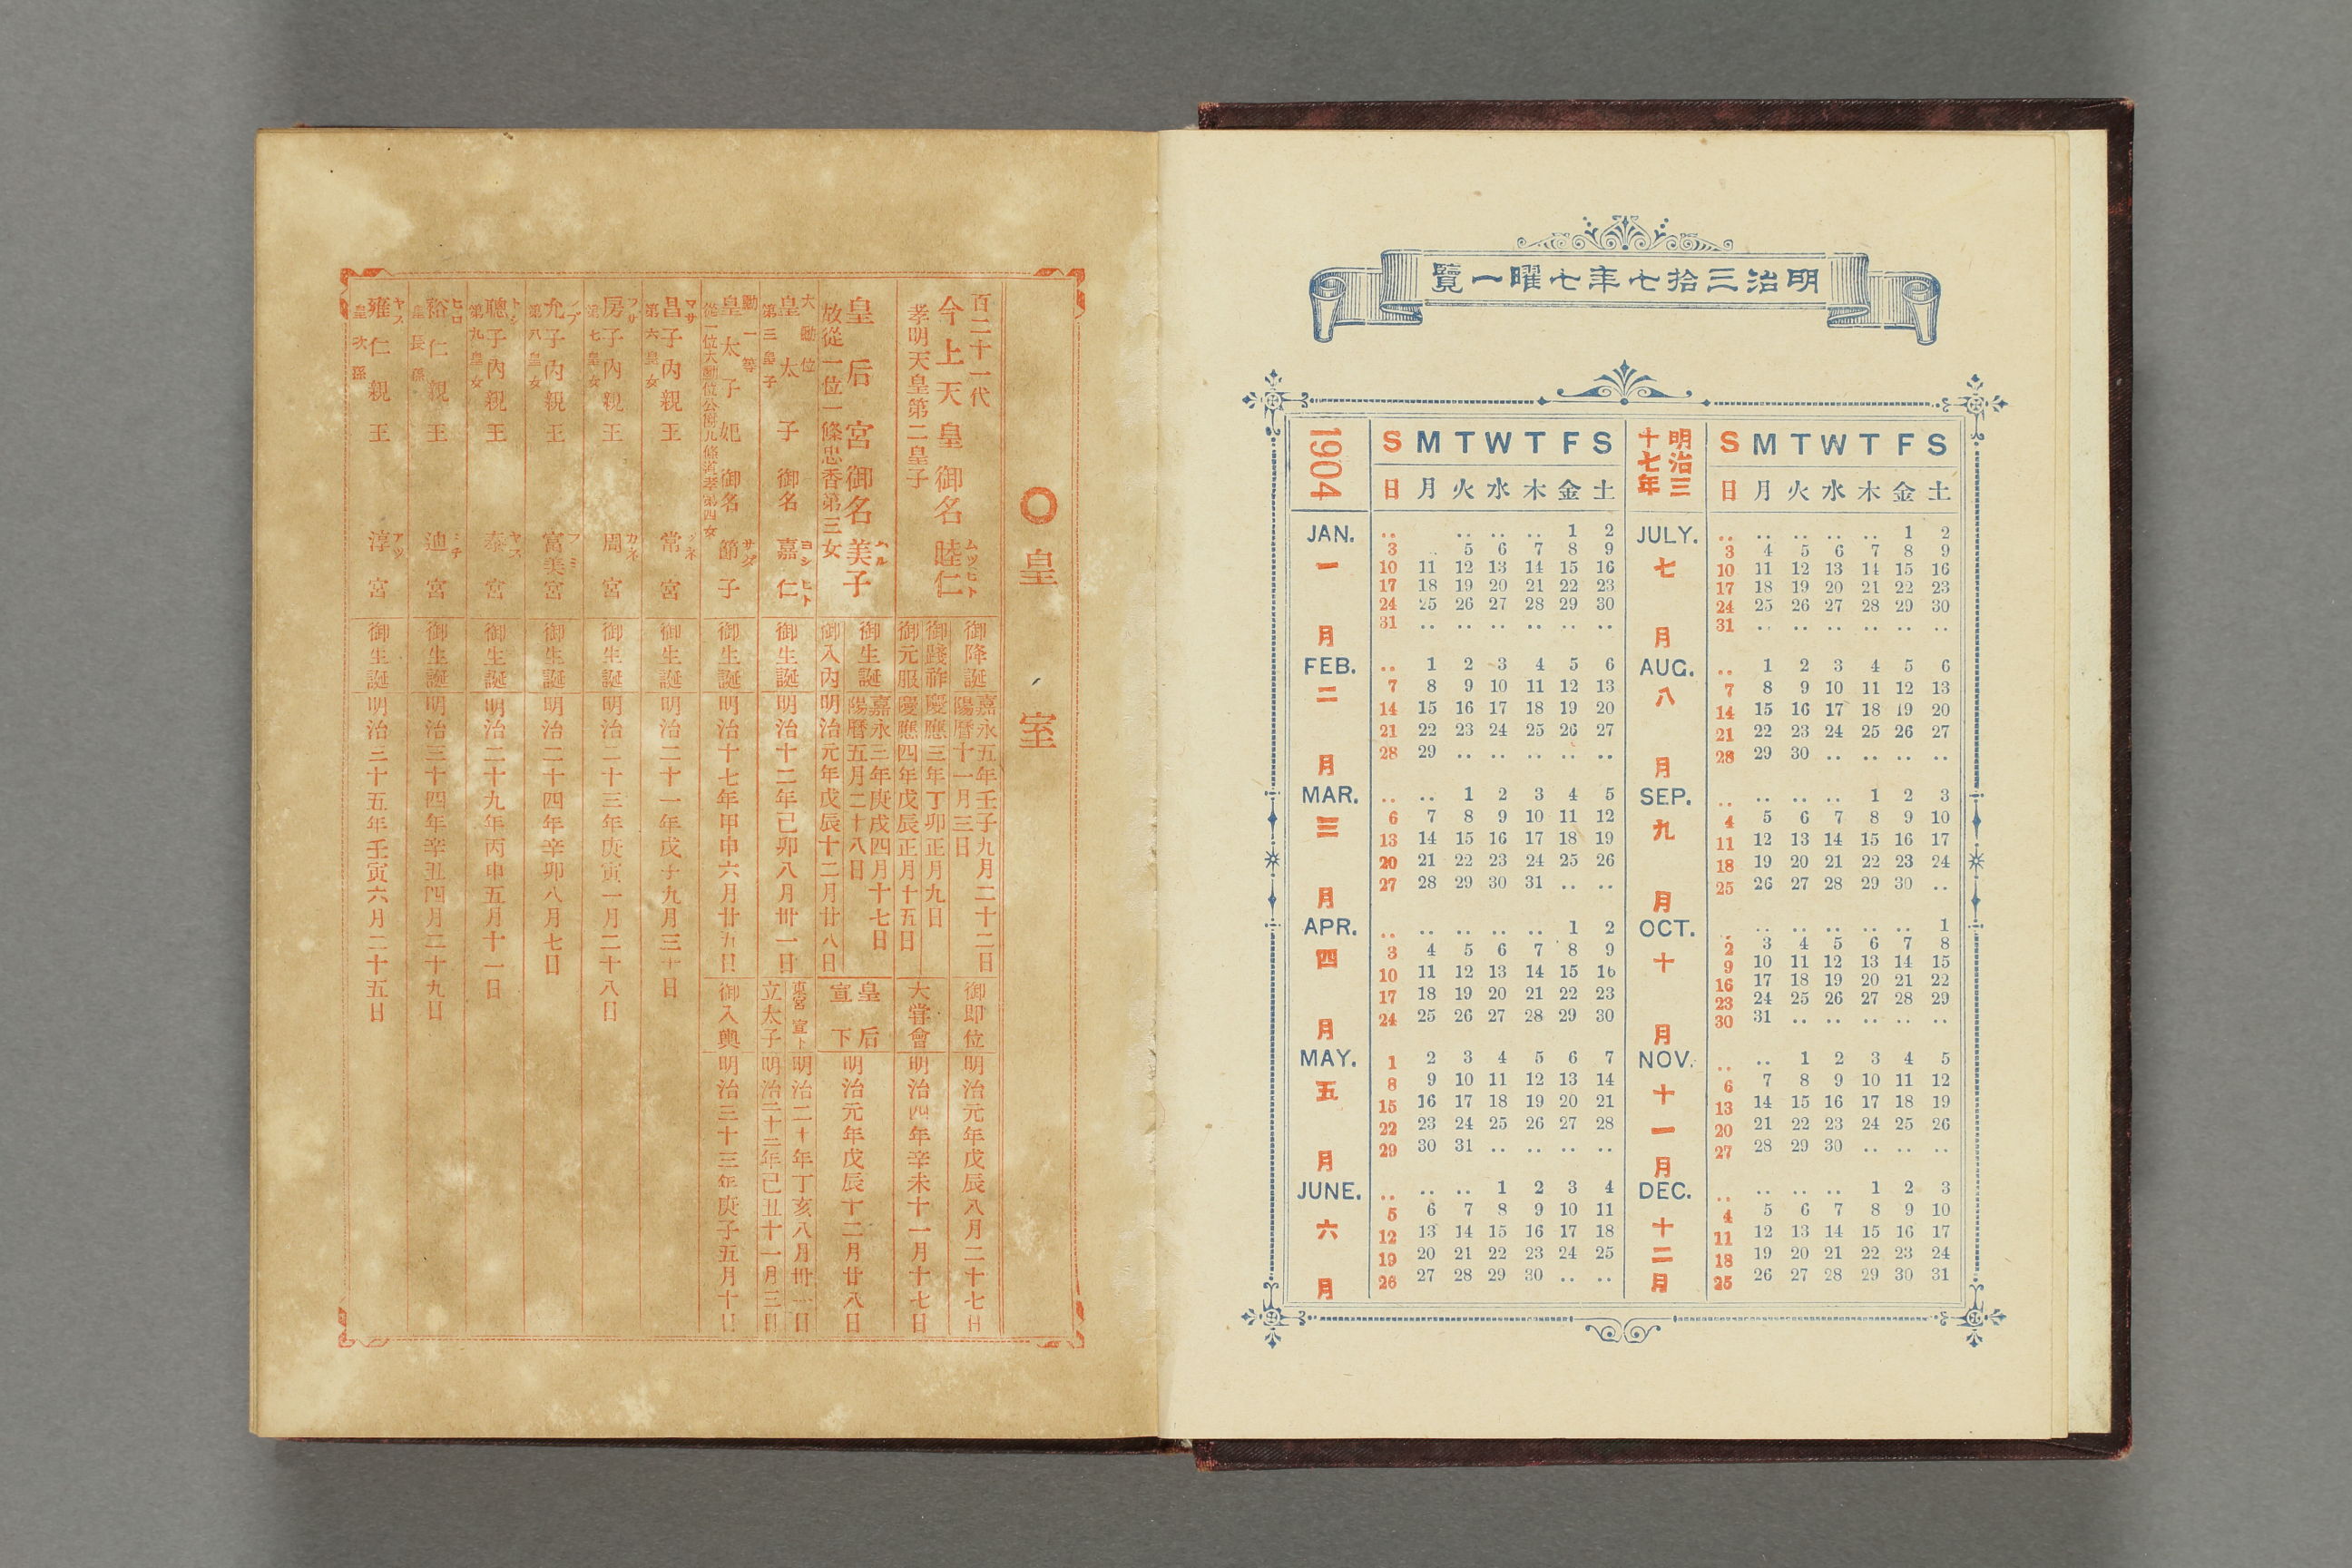 明治三拾七年七曜一覽
1904
S M T W T F S
日 月 火 水 木 金 土
JAN.
一月
.. .. .. .. 1 2
3 . 5 6 7 8 9
10 11 12 13 14 15 16
17 18 19 20 21 22 23
24 25 26 27 28 29 30
31 .. .. .. .. .. ..
FEB.
二月
.. 1 2 3 4 5 6
7 8 9 10 11 12 13
14 15 16 17 18 19 20
21 22 23 24 25 26 27
28 29 .. .. .. .. ..
MAR.
三月
.. .. 1 2 3 4 5
6 7 8 9 10 11 12
13 14 15 16 17 18 19
20 21 22 23 24 25 26
27 28 29 30 31 .. ..
APR.
四月
.. .. .. .. .. 1 2
3 4 5 6 7 8 9
10 11 12 13 14 15 16
17 18 19 20 21 22 23
24 25 26 27 28 29 30
MAY.
五月
1 2 3 4 5 6 7
8 9 10 11 12 13 14
15 16 17 18 19 20 21
22 23 24 25 26 27 28
29 30 31 .. .. .. ..
JUNE.
六月
.. .. .. 1 2 3 4
5 6 7 8 9 10 11
12 13 14 15 16 17 18
19 20 21 22 23 24 25
26 27 28 29 30 .. ..
明治三十七年
S M T W T F S
日 月 火 水 木 金 土
JULY.
七月
.. .. .. .. .. 1 2
3 4 5 6 7 8 9
10 11 12 13 14 15 16
17 18 19 20 21 22 23
24 25 26 27 28 29 30
31 .. .. .. .. .. ..
AUG.
八月
.. 1 2 3 4 5 6
7 8 9 10 11 12 13
14 15 16 17 18 19 20
21 22 23 24 25 26 27
28 29 30 .. .. .. ..
SEP.
九月
.. .. .. .. 1 2 3
4 5 6 7 8 9 10
11 12 13 14 15 16 17
18 19 20 21 22 23 24
25 26 27 28 29 30 ..
OCT.
十月
.. .. .. .. .. .. 1
2 3 4 5 6 7 8
9 10 11 12 13 14 15
16 17 18 19 20 21 22
23 24 25 26 27 28 29
30 31 .. .. .. .. ..
NOV.
十一月
.. .. 1 2 3 4 5
6 7 8 9 10 11 12
13 14 15 16 17 18 19
20 21 22 23 24 25 26
27 28 29 30 .. .. ..
DEC.
十二月
.. .. .. .. 1 2 3
4 5 6 7 8 9 10
11 12 13 14 15 16 17
18 19 20 21 22 23 24
25 26 27 28 29 30 31
○皇室
百二十一代
今上天皇御名睦仁
ムツヒト
孝明天皇第二皇子
御降誕 嘉永五年壬子九月二十二日
陽曆十一月三日
御踐祚 慶應三年丁卯正月九日
御元服 慶應四年戊辰正月十五日
御即位 明治元年戊辰八月二十七日
大甞會 明治四年辛未十一月十七日
皇后宮御名美子
ハル
故從一位一條忠香第三女
御生誕 嘉永三年庚戌四月十七日
陽曆五月二十八日
御入內 明治元年戊辰十二月廿八日
皇后宣下 明治元年戊辰十二月廿八日
大勳位
皇太子御名嘉仁
ヨシヒト
第三皇子
御生誕 明治十二年己卯八月卅一日
東宮宣下 明治二十年丁亥八月卅一日
立太子 明治二十二年己丑十一月三日
勳一等
皇太子妃御名節子
サダ
從一位大勳位公爵九條道孝第四女
御生誕 明治十七年甲申六月廿五日
御入輿 明治三十三年庚子五月十日
昌子內親王 常宮
マサ ツネ
第六皇女
御生誕 明治二十一年戊子九月三十日
房子內親王 周宮
フサ カネ
第七皇女
御生誕 明治二十三年庚寅一月二十八日
允子內親王 富美宮
ノブ フミ
第八皇女
御生誕 明治二十四年辛卯八月七日
聰子內親王 泰宮
トシ ヤス
第九皇女
御生誕 明治二十九年丙申五月十一日
裕仁親王 迪宮
ヒロ ミチ
皇長孫
御生誕 明治三十四年辛丑四月二十九日
雍仁親王 淳宮
ヤス アツ
皇次孫
御生誕 明治三十五年壬寅六月二十五日